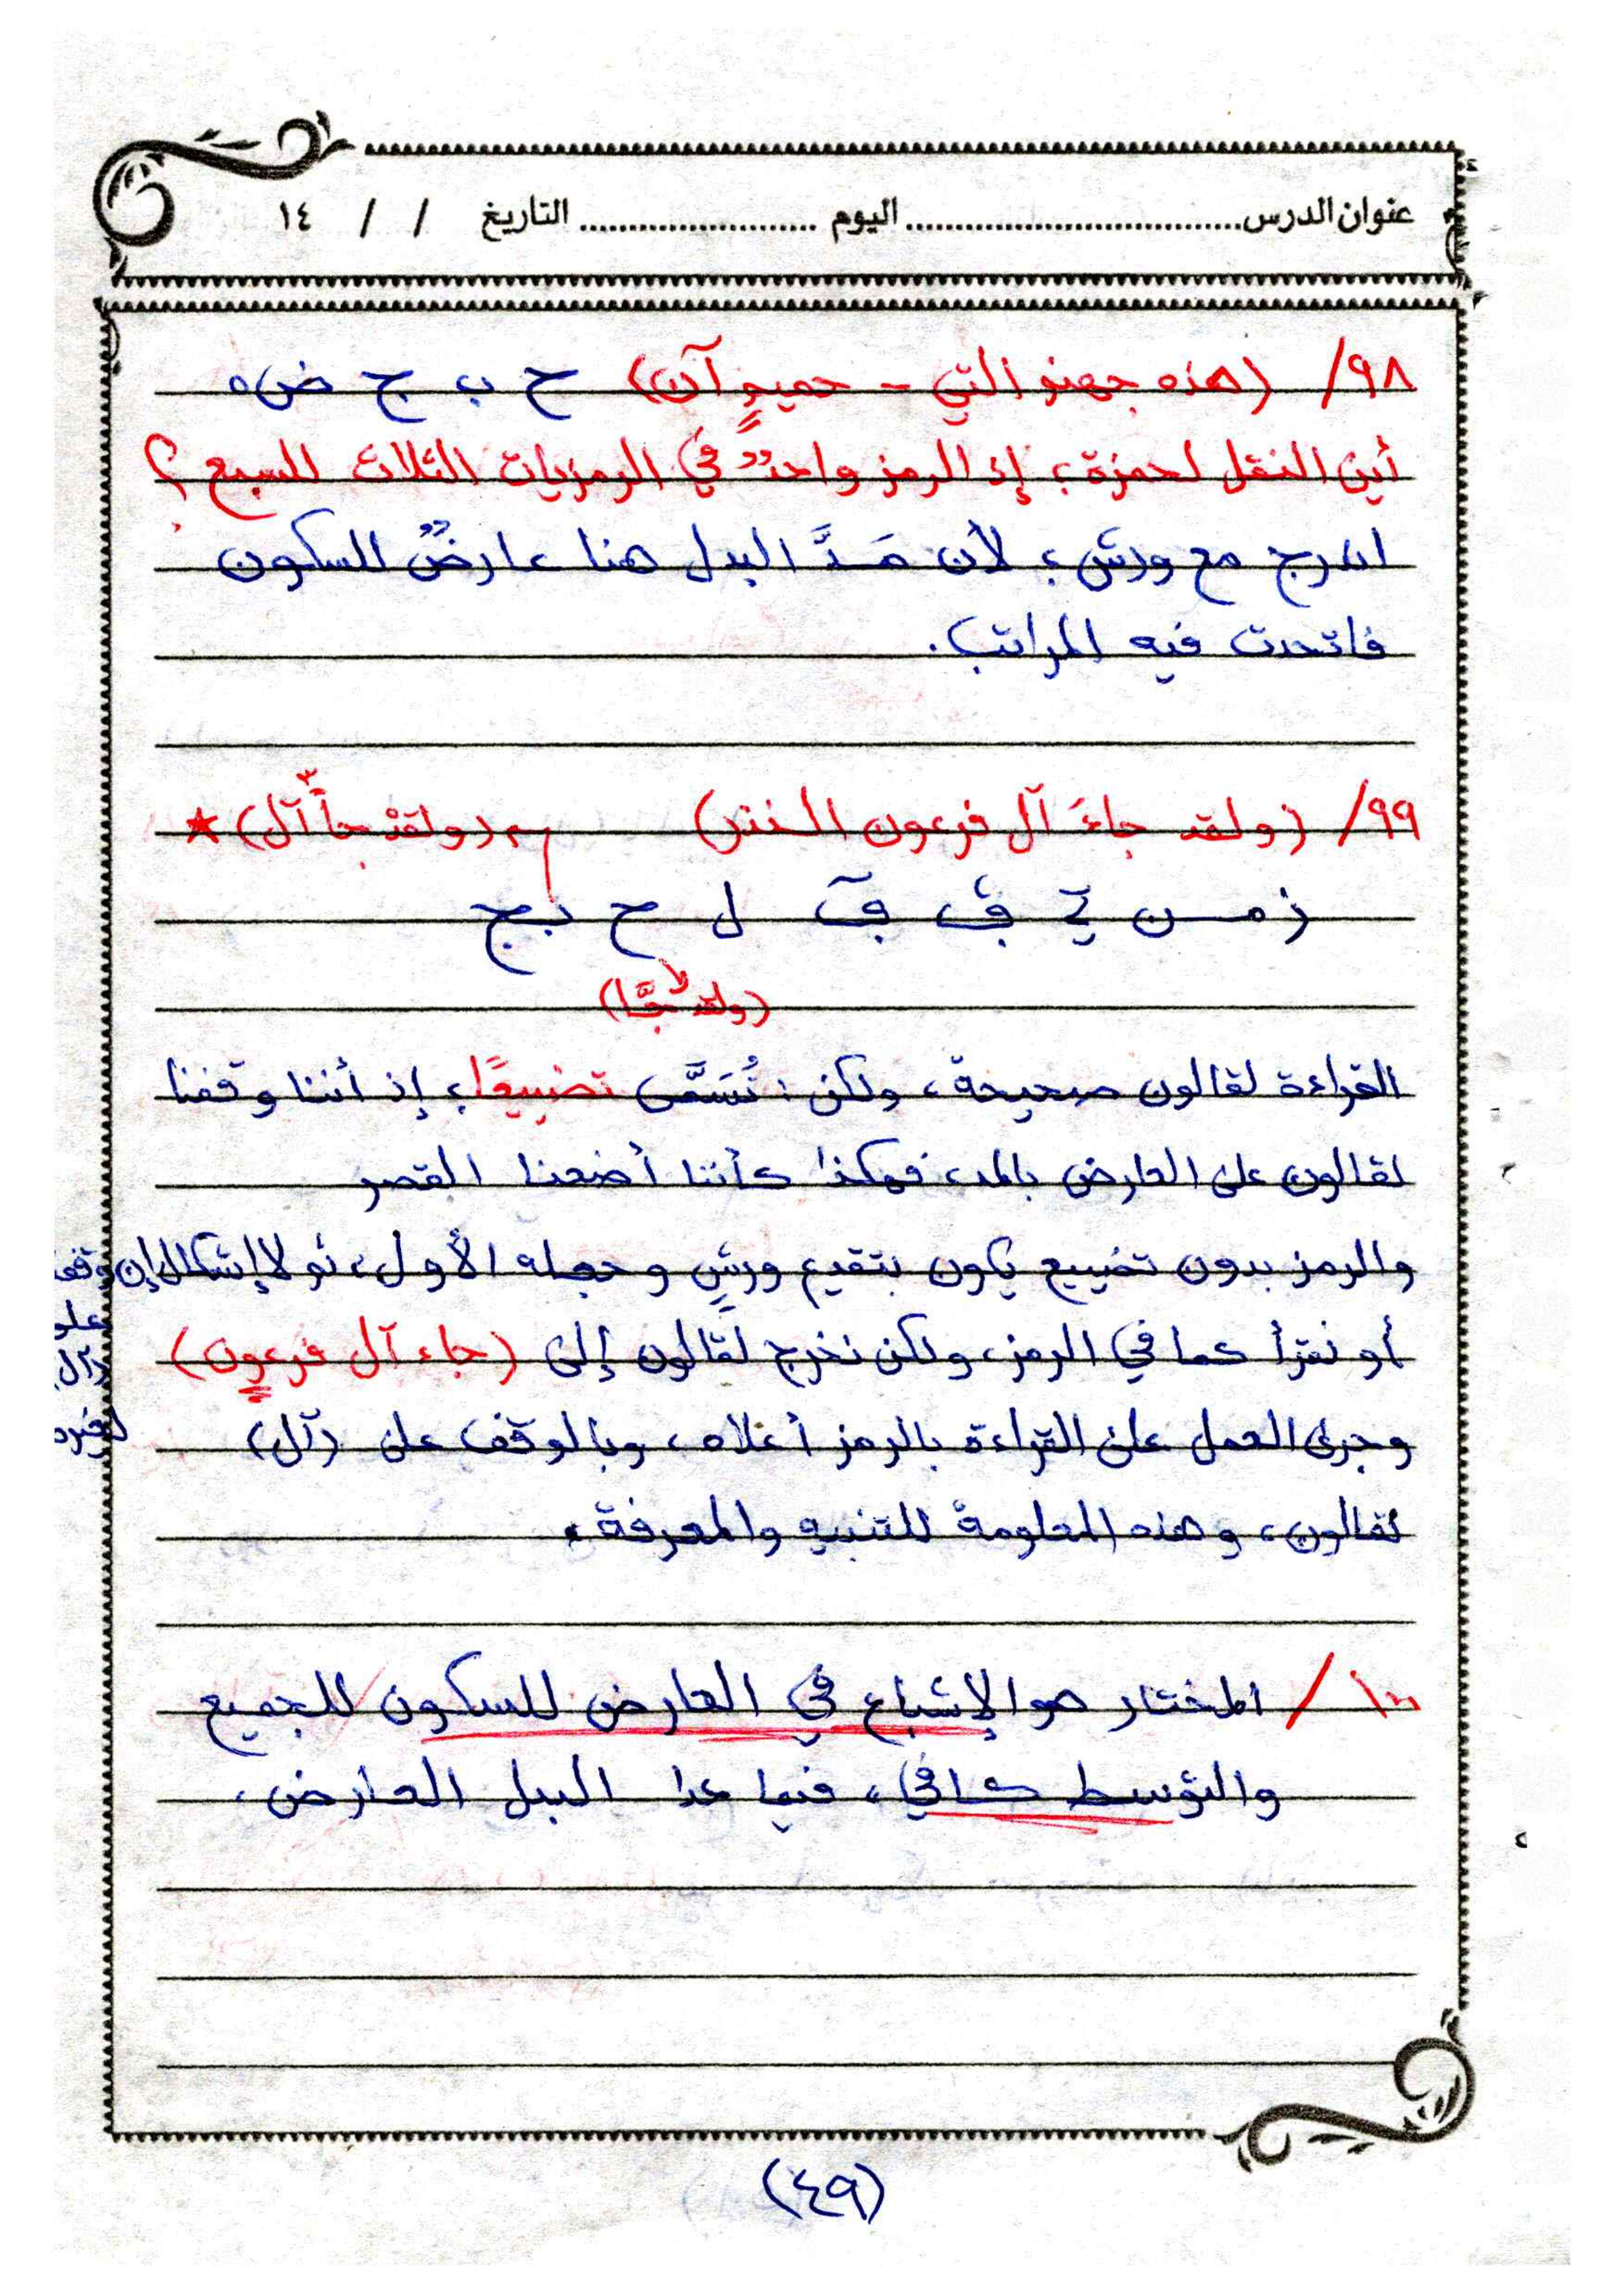 عنوان الدرس................................ اليوم ........................ التاريخ / / ١٤
٩٨/ (هذه جهنم التي - حميمٍ آن) ح ب ج ض٥
أين النقل لحمزة؛ إذ الرمز واحدٌ في الرمزيات الثلاث للسبع؟
اندرج مع ورش؛ لأن مَدَّ البدل هنا عارضٌ للسكون
فاتحدت فيه المراتب.
٩٩/ (ولقد جاءَ آل فرعون النذر) (ولقدْ جآ آل) ★
ز م ن ل ح ب ج
(ولقد جَّا)
القراءة لقالون صحيحة، ولكن: تُسَمَّى تضييعًا؛ إذ أننا وقفنا
لقالون على العارض بالمد، فهكذا كأننا أضعنا القصر
والرمز بدون تضييع يكون بتقديم ورشٍ وجعله الأول، ثم لا إشكال إن وقفت
على
(آل)
لوحده
أو نقرأ كما في الرمز، ولكن نخرج لقالون إلى (جاء آل فرعون)
وجرى العمل على القراءة بالرمز أعلاه، وبالوقف على (آل)
لقالون، وهذه المعلومة للتنبيه والمعرفة.
١٠٠/ المختار هو الإشباع في العارض للسكون للجميع
والتوسط كافي، فيما عدا البدل العارض.
(٤٩)